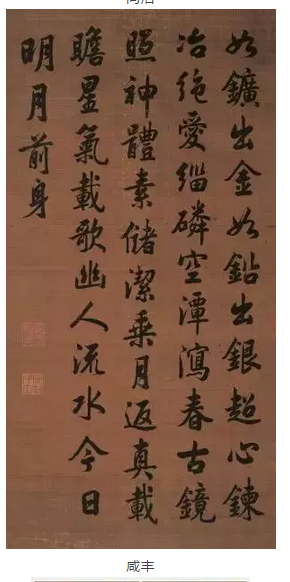 如鑛出金如鉛出銀超心鍊
冶絶愛緇磷空潭瀉春古鏡
照神體素儲潔乗月返真載
瞻星氣載歌幽人流水今日
明月前身
咸丰